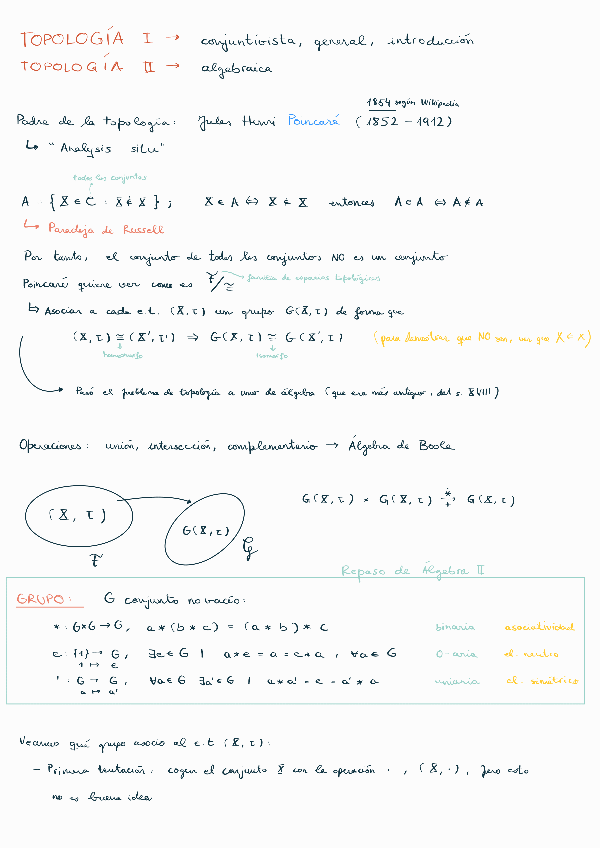 TOPOLOGÍA I → conjuntivista, general, introducción
TOPOLOGÍA II → algebraica
1854 según Wikipedia
Padre de la topología: Jules Henri Poincaré (1852 - 1912)
↳ "Analysis situ"
todos los conjuntos
A = {X ∈ C : X ∉ X} ; X ∈ A ⇔ X ∉ X entonces A ∈ A ⇔ A ∉ A
↳ Paradoja de Russell
Por tanto, el conjunto de todos los conjuntos NO es un conjunto
Poincaré quiere ver como es F/≅ → familia de espacios topológicos
↳ Asociar a cada e.t. (X, τ) un grupo G(X, τ) de forma que
(X, τ) ≅ (X', τ') ⇒ G(X, τ) ≅ G(X', τ) (para demostrar que NO son,
homeomorfo isomorfo
Pasó el problema de topología a uno de álgebra (que era más antiguo, del s. XVIII)
Operaciones: unión, intersección, complementario → Álgebra de Boole
(X, τ) G(X, τ) G(X, τ) × G(X, τ) →
G(X, τ)
F G
Repaso de Álgebra II
GRUPO: G conjunto no vacío:
* : G×G → G, a * (b * c) = (a * b) * c binaria asociatividad
e : {1} → G, ∃e ∈ G | a * e = a = e * a, ∀a ∈ G 0-aria el. neutro
1 ↦ e
' : G → G, ∀a ∈ G ∃a' ∈ G | a * a' = e = a' * a uniaria el. simétrico
a ↦ a'
Veamos qué grupo asocio al e.t (X, τ):
- Primera tentación: coger el conjunto X con la operación · , (X, ·), pero esto
no es buena idea